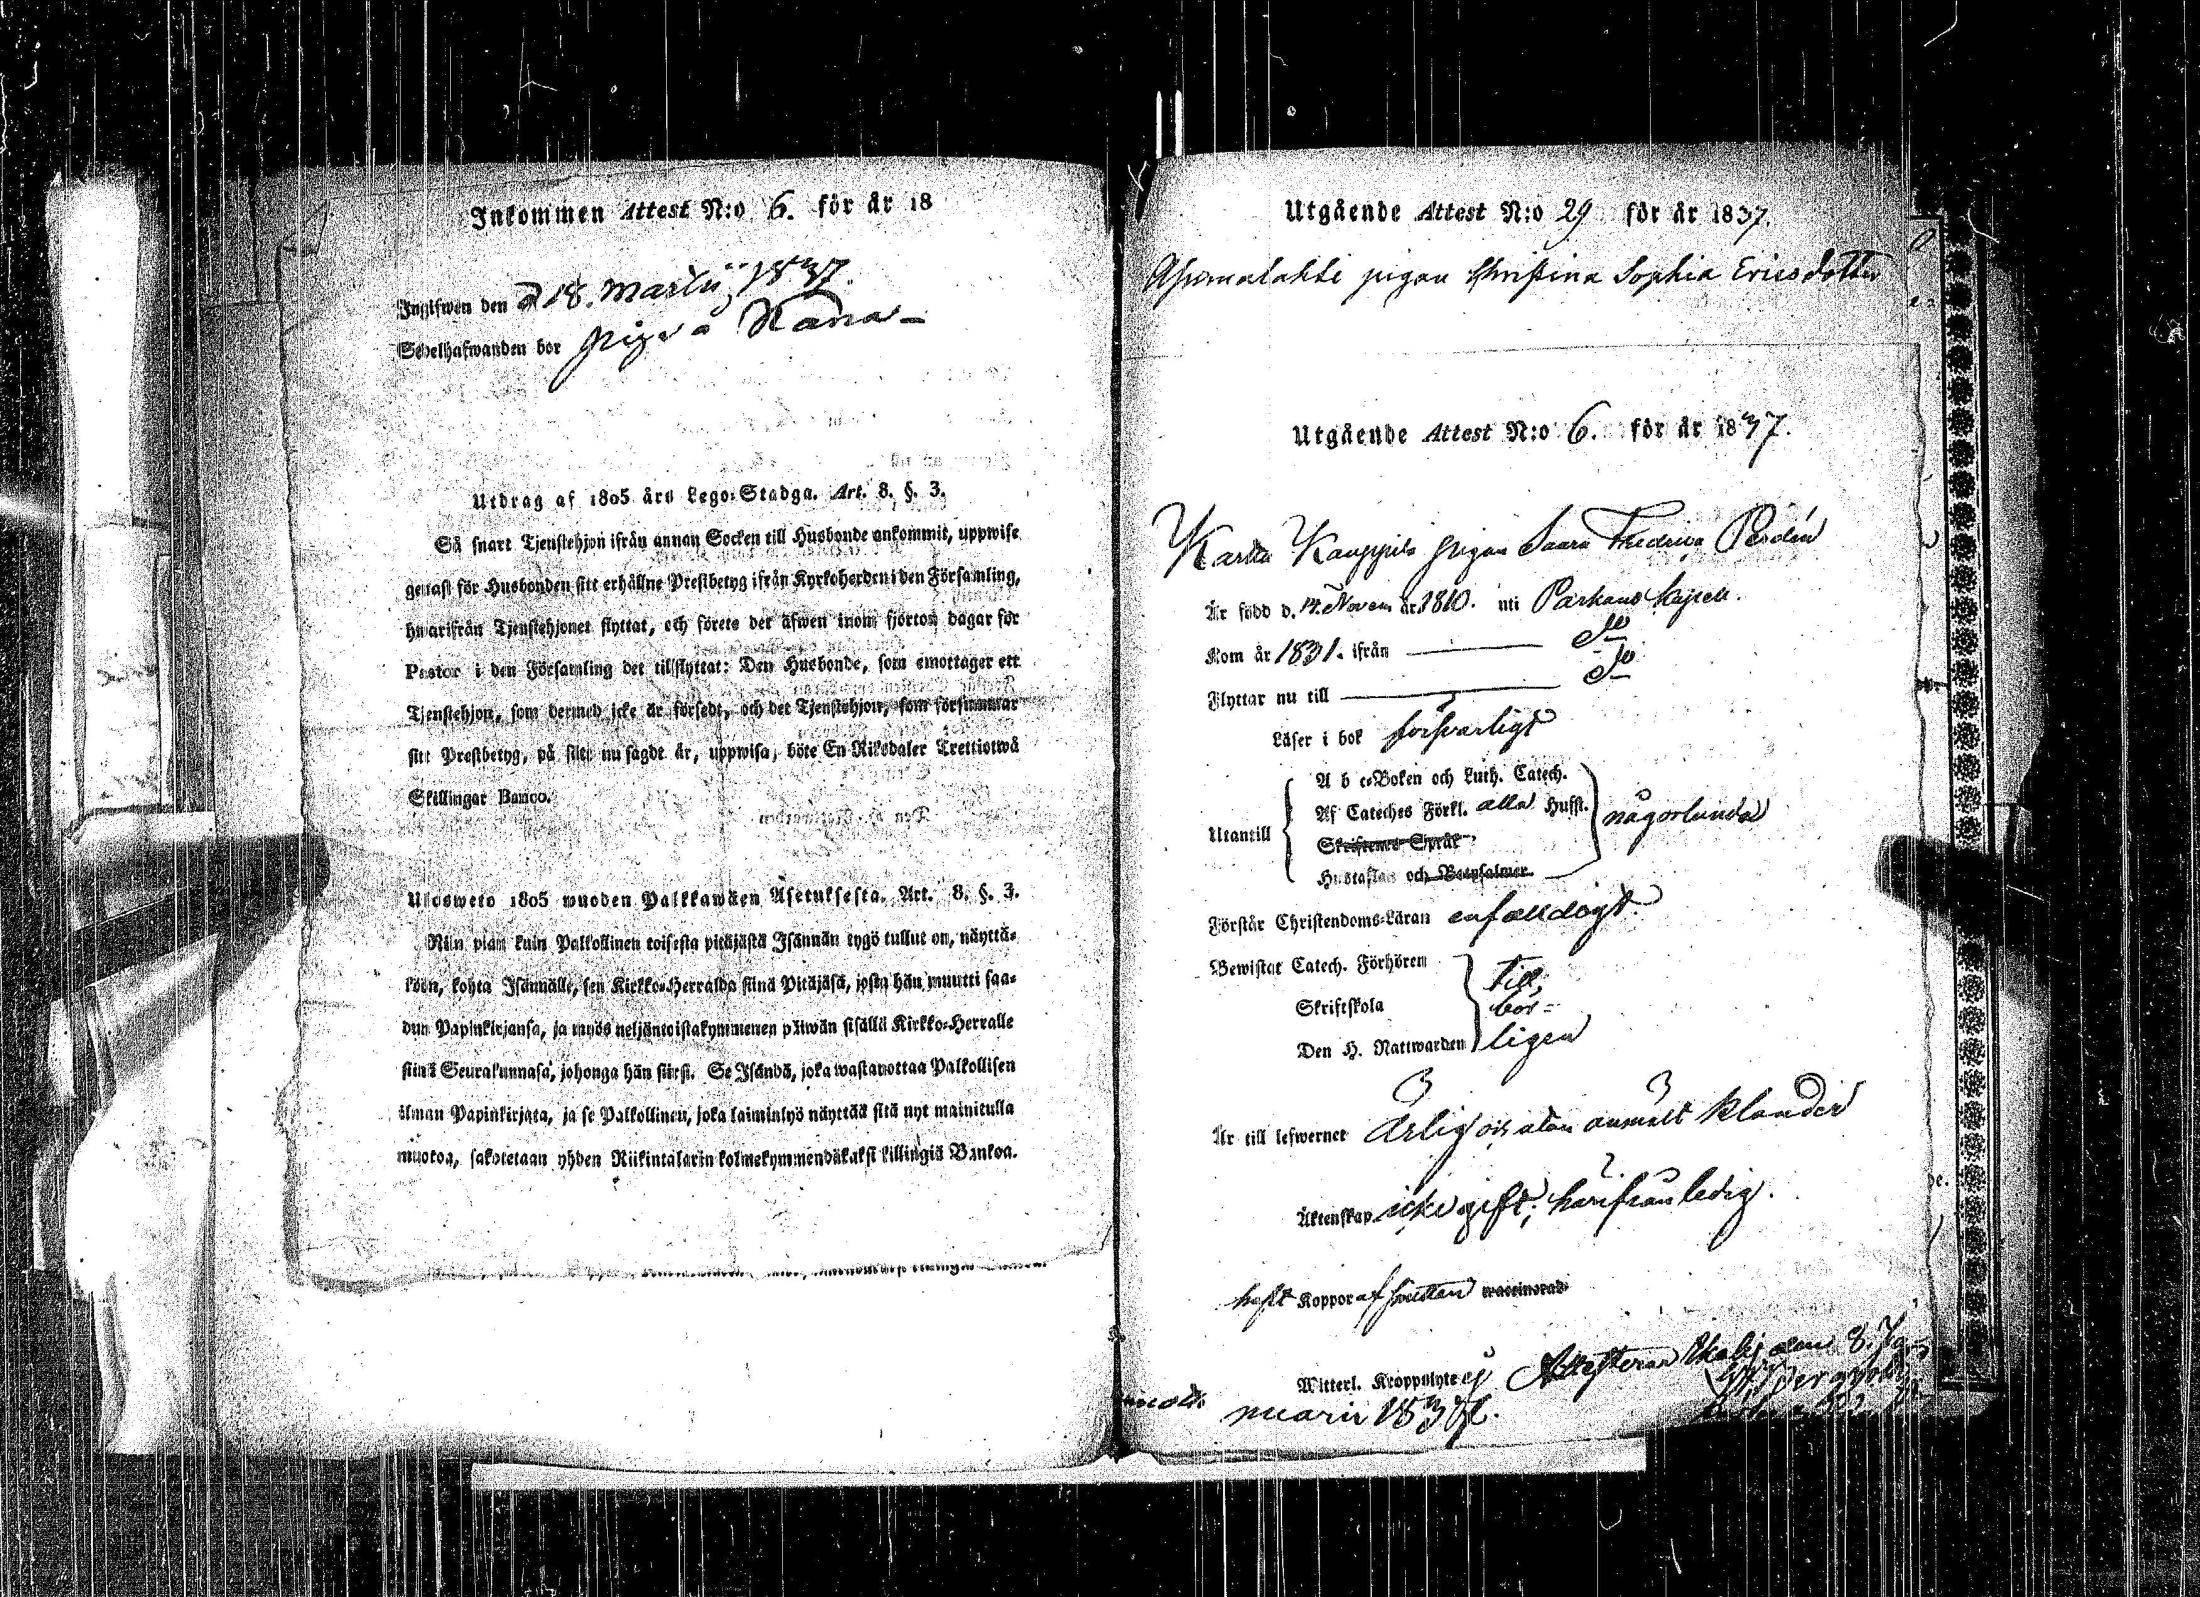 Inkommen Attest N:o 6. för år 18
Ingifwen den d 18. Martii 1837.
Sedelhafwanden bor
Utdrag af 1805 års Lego-Stadga. Art. 8. §. 3.
Så snart Tjenstehjon ifrån annan Socken till Husbonde ankommit, uppwise
genast för Husbonden sitt erhållne Prestbetyg ifrån Kyrkoherden i den Församling,
hwarifrån Tjenstehjonet flyttat, och förete det äfwen inom fjorton dagar för
Pastor i den Församling det tillflyttat: Den Husbonde, som emottager ett
Tjenstehjon, som dermed icke är försedt, och det Tjenstehjon, som försummar
sitt Prestbetyg, på sätt nu sagdt är, uppwisa, böte En Riksdaler Trettiotwå
Skillingar Banco.
Ulosweto 1805 wuoden Palkkawäen Asetuksesta. Art. 8. §. 3.
Niin pian kuin Palkollinen toisesta pitäjästä Isännän tygö tullut on, näyttä-
köön, kohta Isännälle, sen Kirkko-Herralda siinä Pitäjäsä, josta hän muutti saa-
dun Papinkirjansa, ja myös neljäntoistakymmenen päiwän sisällä Kirkko-Herralle
siinä Seurakunnasa, johonga hän siirsi. Se Isändä, joka wastaanottaa Palkollisen
ilman Papinkirjata, ja se Palkollinen, joka laiminlyö näyttää sitä nyt mainitulla
muotoa, sakotetaan yhden Riikintalarin kolmekymmendäkaksi killingiä Bankoa.
Utgående Attest N:o 29 för år 1837.
pigan Christina Sophia Ericsdotter
Utgående Attest N:o 6. för år 1837.
Karta Kauppila pigan Saara Fredrica
Är född d. 14. Novem. år 1810. uti Parkano kapell.
Kom år 1831. ifrån — Do
Flyttar nu till — Do
Läser i bok försvarligt
A b c-Boken och Luth. Catech.
Af Cateches Förkl. alla Husst.
Utantill någorlunda
Skriftenes Språk
Hustaflan och Botpsalmer
Förstår Christendoms-Läran enfalldigt.
Bewistat Catech. Förhören Till
Skriftskola bör=
Den H. Nattwarden ligen
Är till lefwernet Ärlig och utan anmält klander
Äktenskap icke gift; härifrån ledig.
haft Koppor waccinerad
Witterl. Kroppslyte ej Attesterar den 8. Ja-
nuarii 1837.